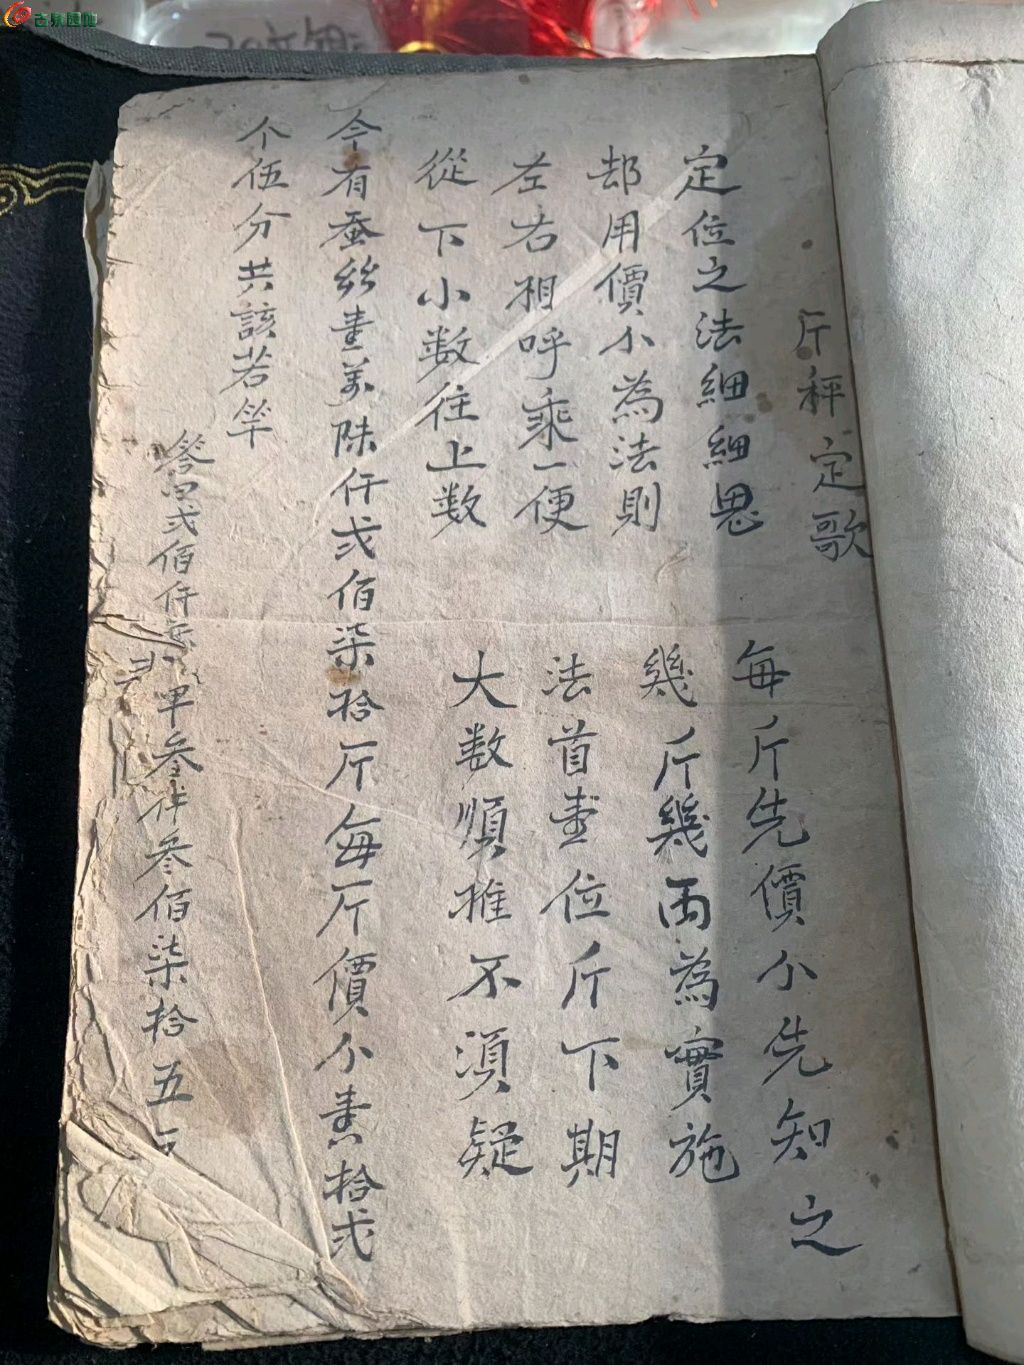 斤秤定歌
定位之法細細思 每斤先價小先知之
却用價小為法則 幾斤幾両為實施
左右相呼乘一便 法首壹位斤下期
從下小数往上数 大数順推不須疑
今有蚕丝壹萬陸仟弍佰柒拾斤每斤價小壹拾弍
个伍分共該若竿
答曰弍佰仟 叁仟叁佰柒拾五
古泉園地